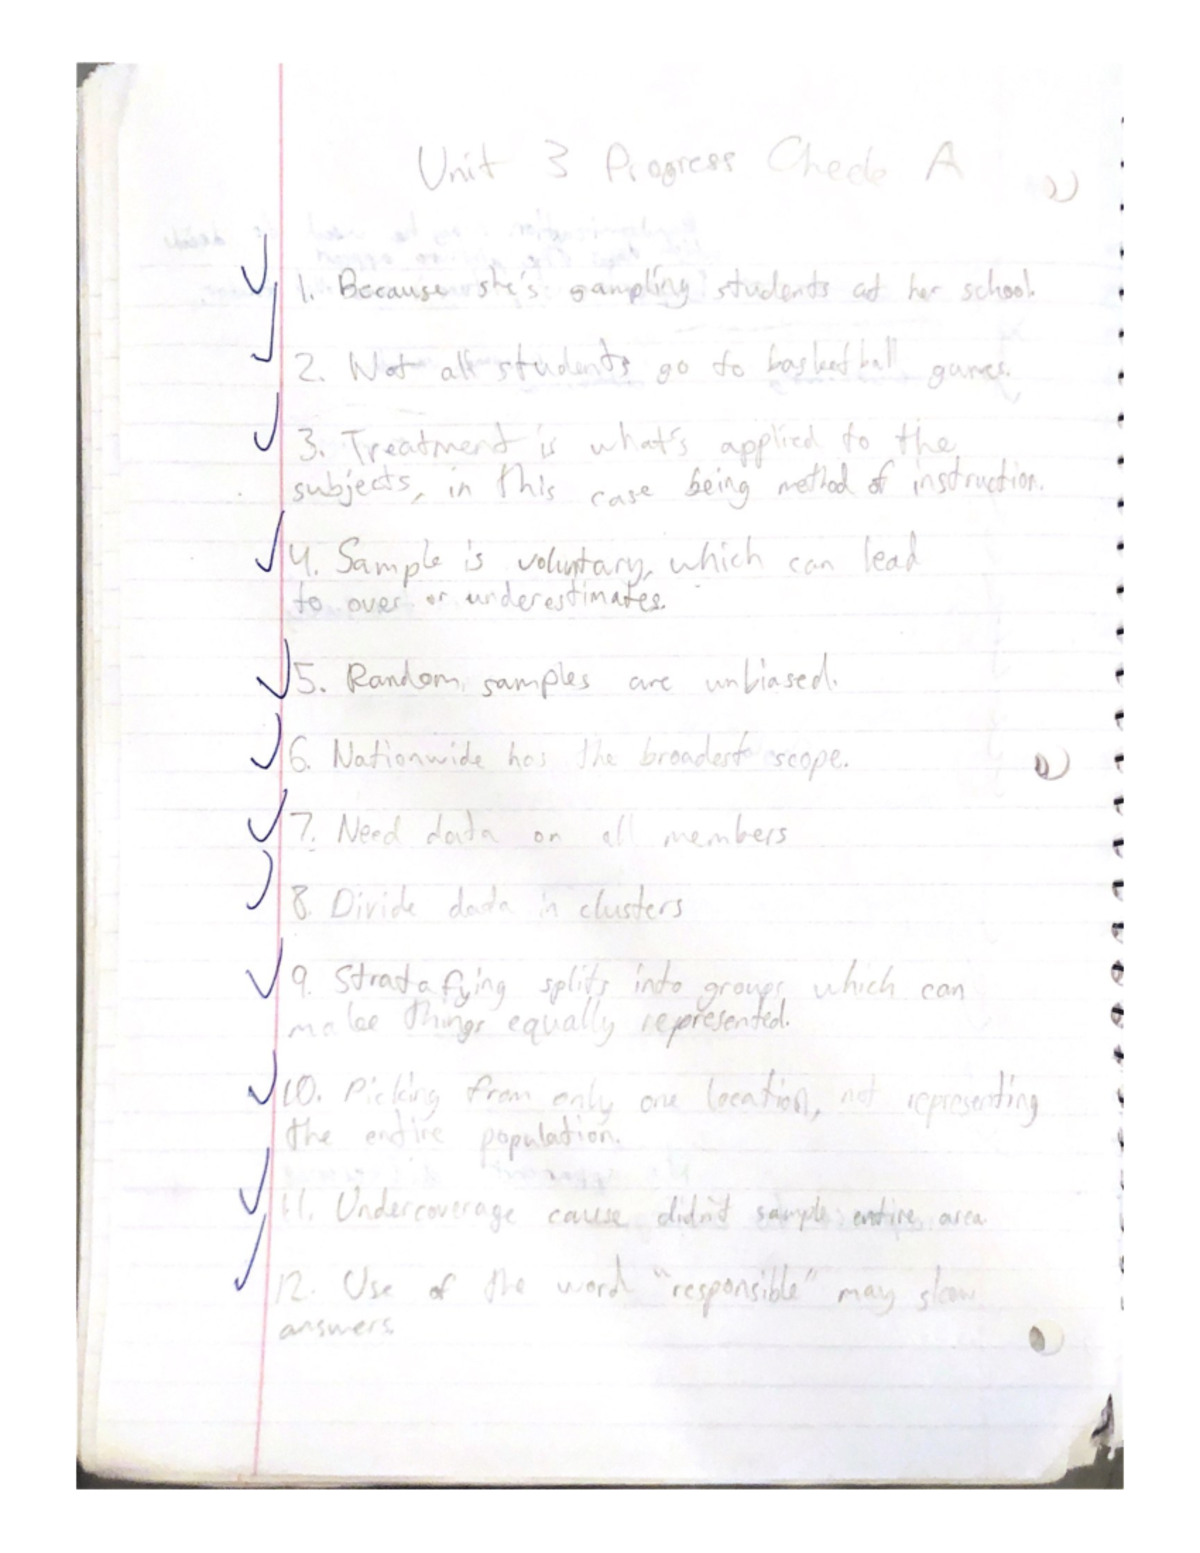 Unit 3 Progress Check A
1. Because she's sampling students at her school.
2. Not all students go to basketball games.
3. Treatment is what's applied to the
subjects, in this case being method of instruction.
4. Sample is voluntary, which can lead
to over or underestimates.
5. Random samples are unbiased.
6. Nationwide has the broadest scope.
7. Need data on all members
8. Divide data in clusters
9. Stratafying splits into groups which can
make things equally represented.
10. Picking from only one location, not representing
the entire population.
11. Undercoverage cause didn't sample entire area
12. Use of the word "responsible" may
answers.